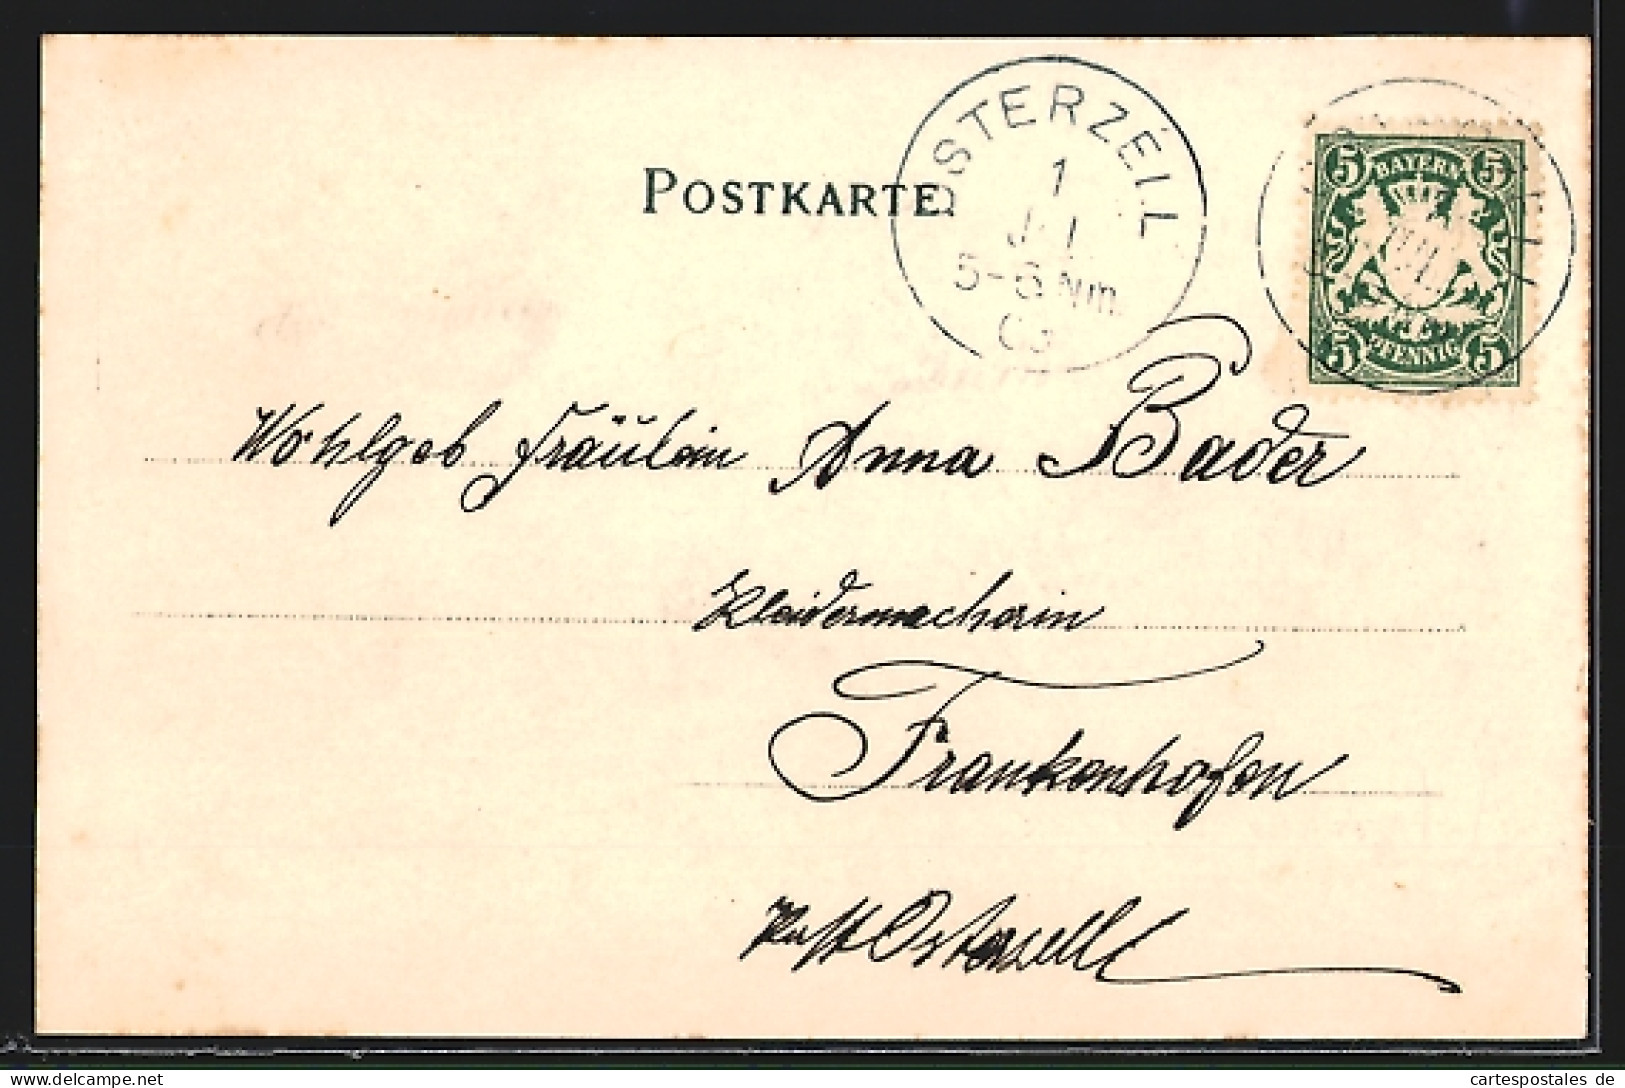 POSTKARTE.
OSTERZEIL
1
5-6 Nm.
03
5 BAYERN 5
5 PFENNIG 5
Wohlgeb Fräulein Anna Bader
Kleidermacherin
Frankenhofen
Post
cartespostales de
hamburg-bildarchiv - delcampe.net